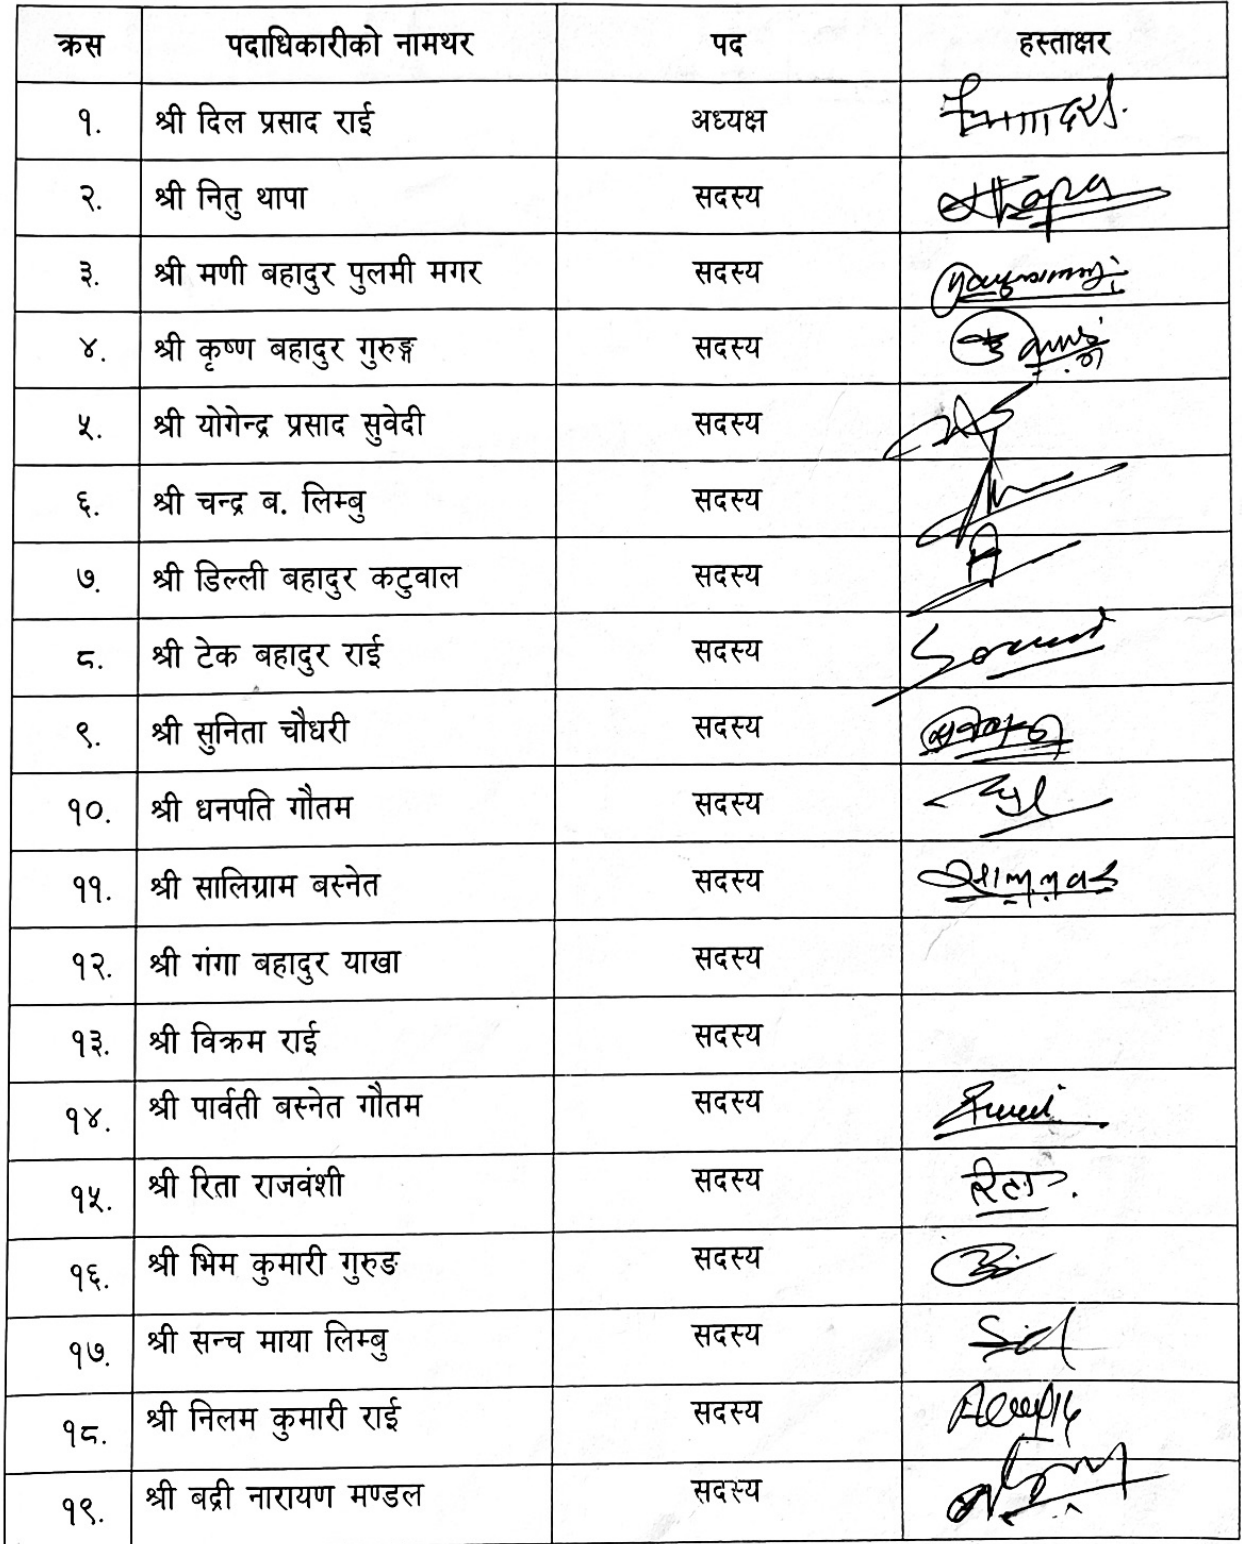 क्रस पदाधिकारीको नामथर पद हस्ताक्षर
१. श्री दिल प्रसाद राई अध्यक्ष
२. श्री नितु थापा सदस्य
३. श्री मणी बहादुर पुलमी मगर सदस्य
४. श्री कृष्ण बहादुर गुरुङ्ग सदस्य
५. श्री योगेन्द्र प्रसाद सुवेदी सदस्य
६. श्री चन्द्र ब. लिम्बु सदस्य
७. श्री डिल्ली बहादुर कटुवाल सदस्य
८. श्री टेक बहादुर राई सदस्य
९. श्री सुनिता चौधरी सदस्य
१०. श्री धनपति गौतम सदस्य
११. श्री सालिग्राम बस्नेत सदस्य
१२. श्री गंगा बहादुर याखा सदस्य
१३. श्री विक्रम राई सदस्य
१४. श्री पार्वती बस्नेत गौतम सदस्य
१५. श्री रिता राजवंशी सदस्य रिता.
१६. श्री भिम कुमारी गुरुङ सदस्य
१७. श्री सन्च माया लिम्बु सदस्य
१८. श्री निलम कुमारी राई सदस्य
१९. श्री बद्री नारायण मण्डल सदस्य